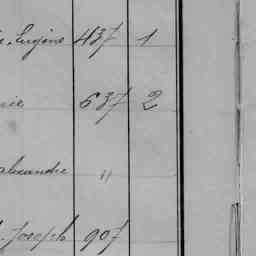 Eugène 437 1
637 2
Alexandre "
Joseph 907